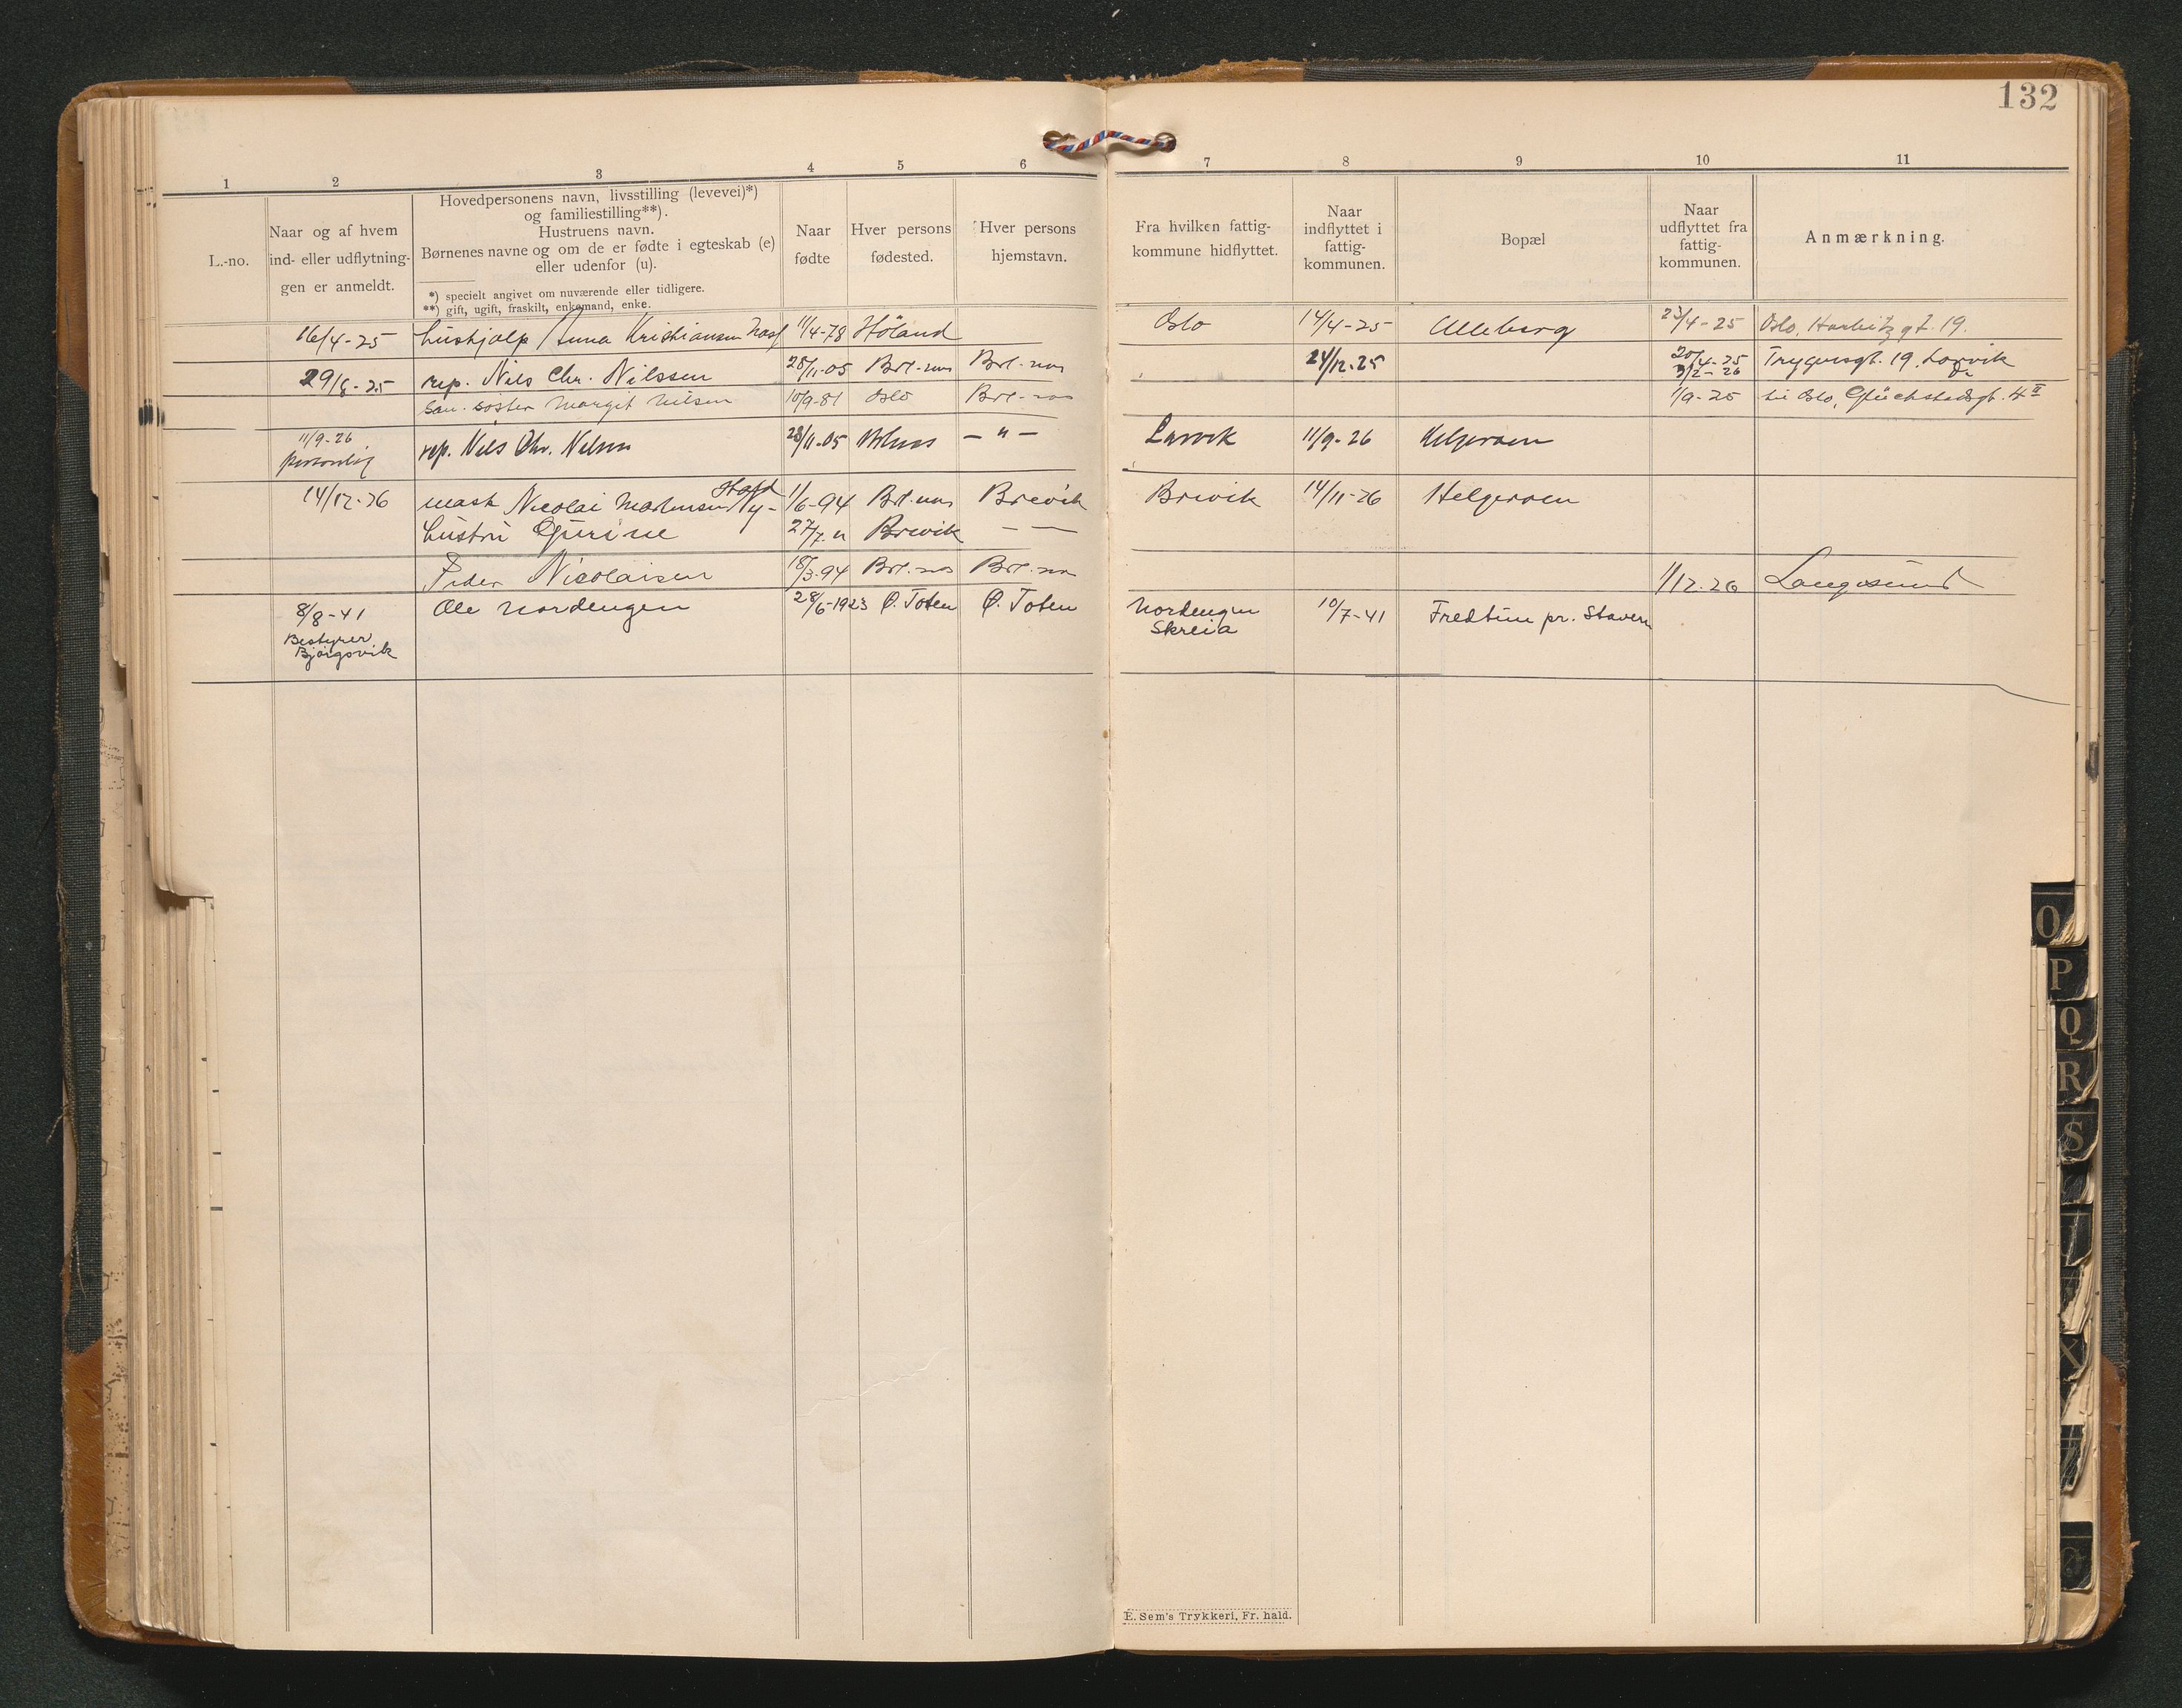 132
1 2 3 4 5 6 7 8 9 10 11
L.-no.
Naar og af hvem
ind- eller udflytnin-
gen er anmeldt.
Hovedpersonens navn, livsstilling (levevei)*)
og familiestilling**).
Hustruens navn.
Børnenes navne og om de er fødte i egteskab (e)
eller udenfor (u).
*) specielt angivet om nuværende eller tidligere.
**) gift, ugift, fraskilt, enkemand, enke.
Naar
fødte
Hver persons
fødested.
Hver persons
hjemstavn.
Fra hvilken fattig-
kommune hidflyttet.
Naar
indflyttet i
fattig-
kommunen.
Bopæl
Naar
udflyttet fra
fattig-
kommunen.
Anmærkning.
16/4-25 hushjælp Anna Kristiansen 11/4-78 Høland Oslo 14/4-25 Alleberg 23/4-25 Oslo, gt. 19.
29/8-25 rep. Nils Chr. Nilssen 28/11-05 Br.l.-nes Br.l.-nes 24/12.25 20/4-25 Tryggvesgt. 19. Larvik
3/2-26 do
søster Margit Nilsen 10/9-81 Oslo Br.l.-nes 1/9-25 til Oslo, Glückstadsgt. 4 II
11/9-26 rep. Nils Chr. Nilsen 28/11-05 Brl.nes — " — Larvik 11/9-26 Helgeroen
personlig
14/12-26 mask Nicolai Martinsen 1/6-94 Br.l.-nes Brevik Brevik 14/11-26 Helgeroen
hustru Gurine 27/7. " Brevik — —
Peder Nicolaisen 18/3-94 Br.l.-nes Br.l.-nes 1/12.26 Langesund
8/8-41 Ole Nordengen 28/6-1923 Ø. Toten Ø. Toten Nordengen 10/7-41 Fredtun pr. Stavern
Skreia
Bestyrer
Bjørgsvik
E. Sem's Trykkeri, Fr.hald.
O
P
Q
R
S
X